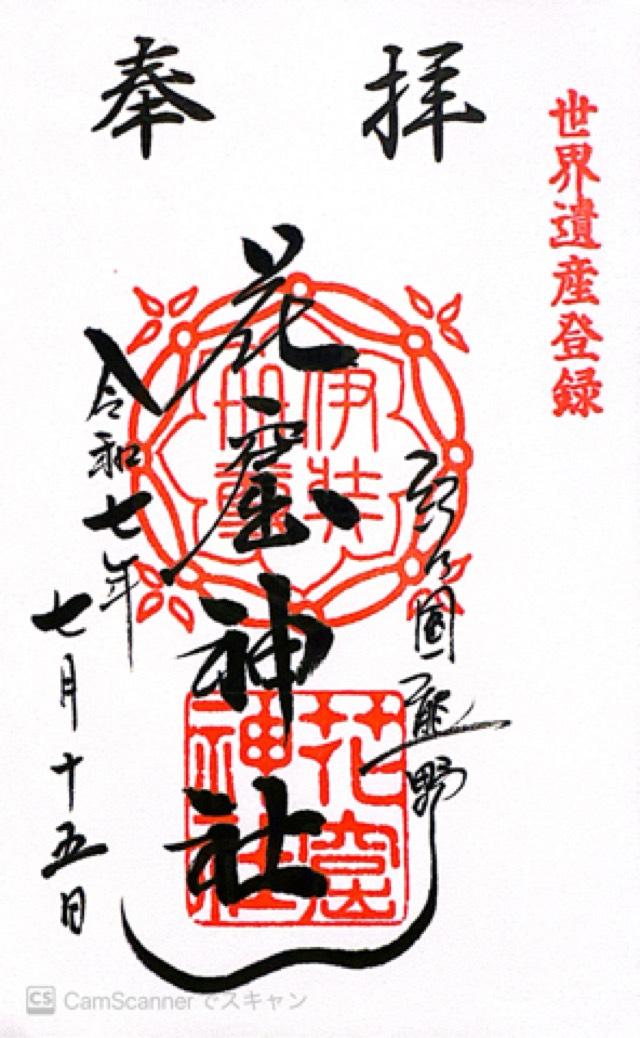 奉拝
世界遺産登録
國熊野
花窟神社
令和七年
七月十五日
伊弉
花窟
神社
CS CamScanner でスキャン